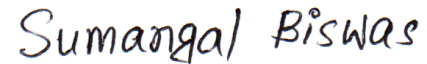 Sumangal Biswas